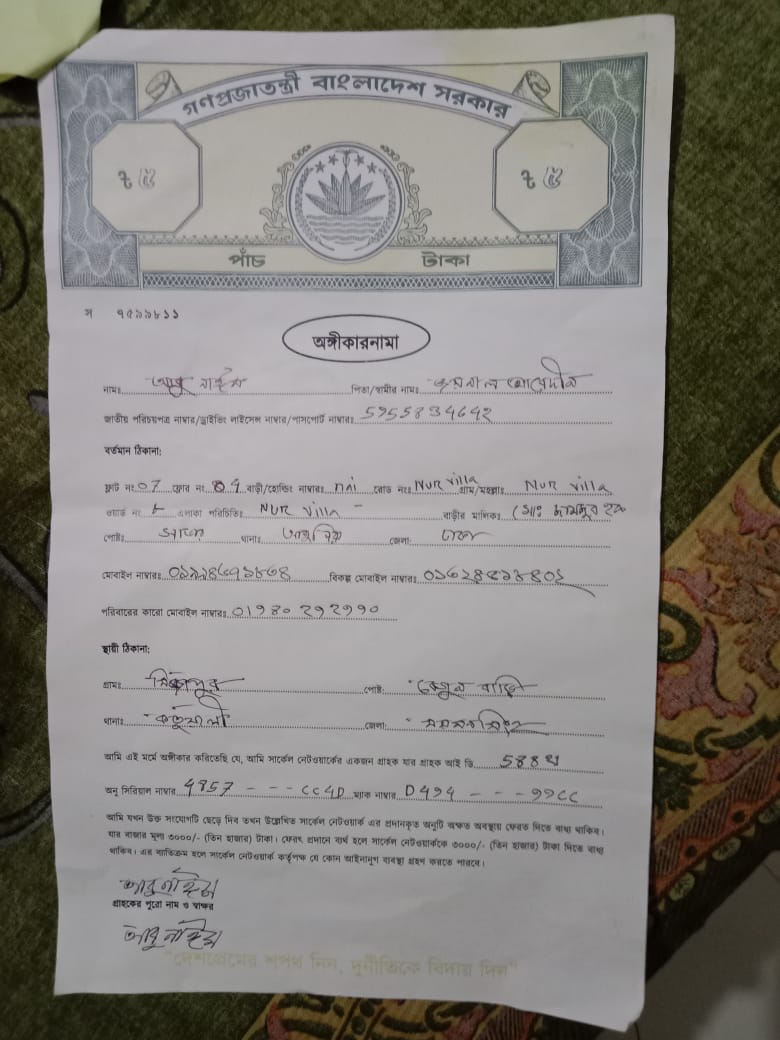 গণপ্রজাতন্ত্রী বাংলাদেশ সরকার
৳ ৫ ৳ ৫
পাঁচ টাকা
স ৭৫৯৯৮১১
অঙ্গীকারনামা
নামঃ আবু নাইম পিতা/স্বামীর নামঃ
জাতীয় পরিচয়পত্র নাম্বার/ড্রাইভিং লাইসেন্স নাম্বার/পাসপোর্ট নাম্বারঃ 5955834642
বর্তমান ঠিকানা:
ফ্লাট নং 07 ফ্লোর নং 04 বাড়ী/হোল্ডিং নাম্বারঃ nai রোড নংঃ Nur villa গ্রাম/মহল্লাঃ Nur villa
ওয়ার্ড নং ৮ এলাকা পরিচিতিঃ Nur villa - বাড়ীর মালিকঃ
পোষ্টঃ থানাঃ জেলাঃ ঢাকা
মোবাইল নাম্বারঃ বিকল্প মোবাইল নাম্বারঃ
পরিবারের কারো মোবাইল নাম্বারঃ
স্থায়ী ঠিকানা:
গ্রামঃ মির্জাপুর পোষ্ট: বেগুন বাড়ি
থানাঃ কতুয়ালী জেলা: ময়মনসিংহ
আমি এই মর্মে অঙ্গীকার করিতেছি যে, আমি সার্কেল নেটওয়ার্কের একজন গ্রাহক যার গ্রাহক আই ডি
অনু সিরিয়াল নাম্বার 4857 - - - CC4D ম্যাক নাম্বার D494 - - - 99CC
আমি যখন উক্ত সংযোগটি ছেড়ে দিব তখন উল্লেখিত সার্কেল নেটওয়ার্ক এর প্রদানকৃত অনুটি অক্ষত অবস্থায় ফেরত দিতে বাধ্য থাকিব।
যার বাজার মূল্য ৩০০০/- (তিন হাজার) টাকা। ফেরৎ প্রদানে ব্যর্থ হলে সার্কেল নেটওয়ার্ককে ৩০০০/- (তিন হাজার) টাকা দিতে বাধ্য
থাকিব। এর ব্যতিক্রম হলে সার্কেল নেটওয়ার্ক কর্তৃপক্ষ যে কোন আইনানুগ ব্যবস্থা গ্রহণ করতে পারবে।
আবু নাইম
গ্রাহকের পুরো নাম ও স্বাক্ষর
আবু নাইম
"দেশপ্রেমের শপথ নিন, দুর্নীতিকে বিদায় দিন"